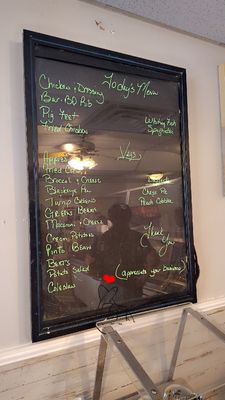 Today's Menu
Chicken & Dressing
Bar-BQ Rib
Pig Feet
Fried Chicken
Whiting Fish
Spaghetti
Veg's
Apples
Fried
Broccoli & Cheese
Blackeye Pea
Turnip Greens
Green Beans
Macaroni & Cheese
Cream Potatoes
Pinto Beans
Beets
Potato Salad
Coleslaw
Peach Cobbler
Thank You
(appreciate your business)